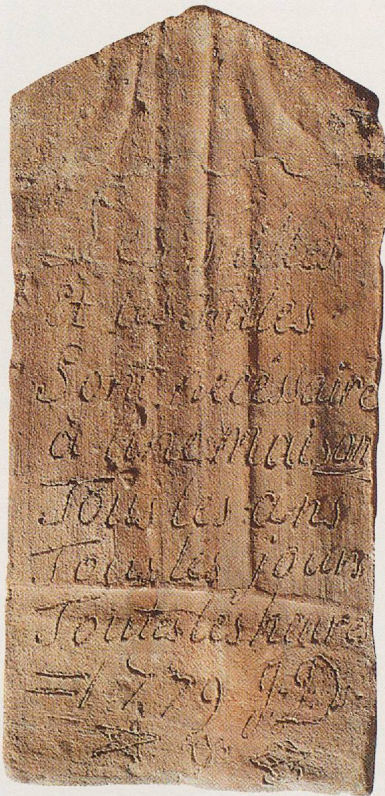 Les
Et les tuiles
Sont necessaire
à une maison
Tous les ans
Tous les jours
Toutes les heures
=1779 J.D.